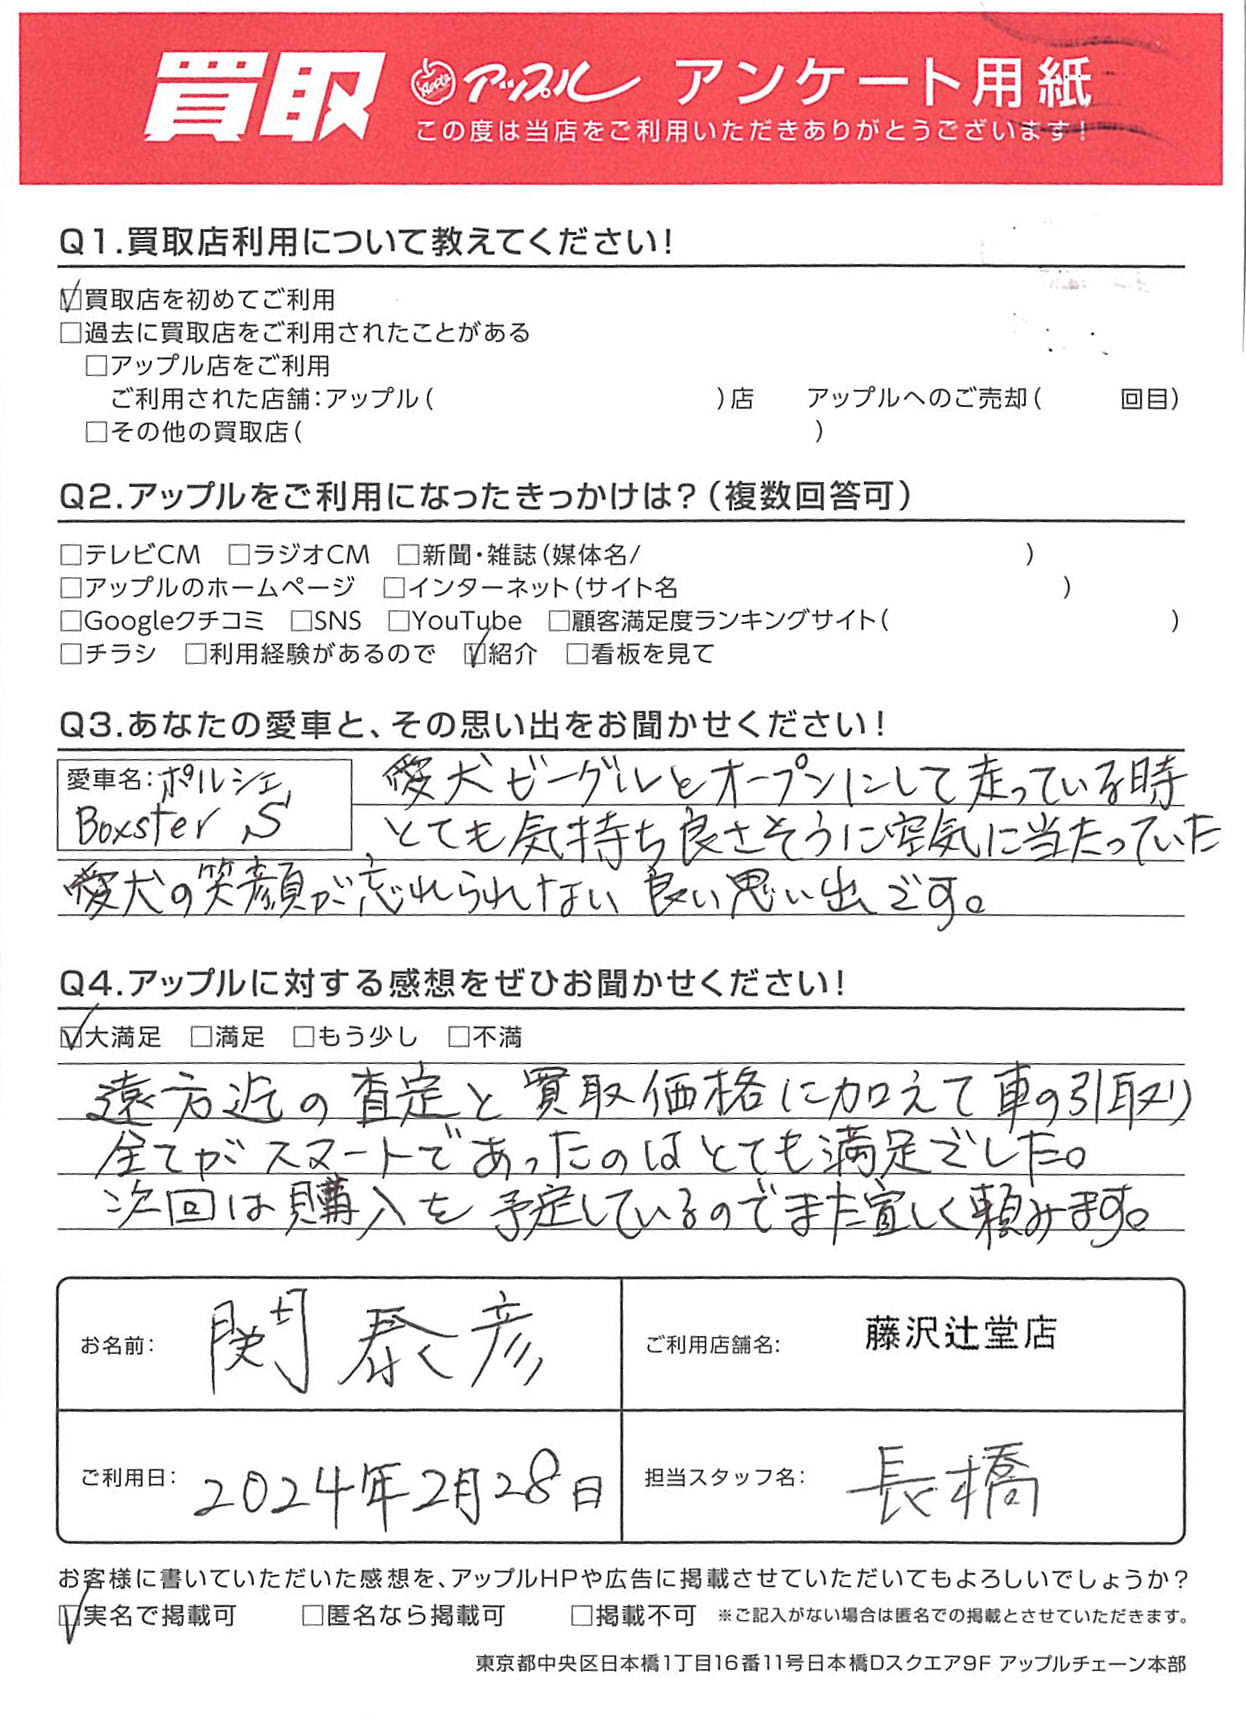 買取 Apple アップル アンケート用紙
この度は当店をご利用いただきありがとうございます!
Q1.買取店利用について教えてください!
☑買取店を初めてご利用
□過去に買取店をご利用されたことがある
□アップル店をご利用
ご利用された店舗:アップル( )店 アップルへのご売却( 回目)
□その他の買取店( )
Q2.アップルをご利用になったきっかけは?(複数回答可)
□テレビCM □ラジオCM □新聞・雑誌(媒体名/ )
□アップルのホームページ □インターネット(サイト名 )
□Googleクチコミ □SNS □YouTube □顧客満足度ランキングサイト( )
□チラシ □利用経験があるので ☑紹介 □看板を見て
Q3.あなたの愛車と、その思い出をお聞かせください!
愛車名:ポルシェ 愛犬ビーグルとオープンにして走っている時
Boxster S とても気持ち良さそうに空気に当たっていた
愛犬の笑顔が忘れられない良い思い出です。
Q4.アップルに対する感想をぜひお聞かせください!
☑大満足 □満足 □もう少し □不満
遠方迄の査定と買取価格に加えて車の引取り
全てがスマートであったのはとても満足でした。
次回は購入を予定しているのでまた宜しく頼みます。
お名前: 関 泰彦 ご利用店舗名: 藤沢辻堂店
ご利用日: 2024年2月28日 担当スタッフ名: 長橋
お客様に書いていただいた感想を、アップルHPや広告に掲載させていただいてもよろしいでしょうか?
☑実名で掲載可 □匿名なら掲載可 □掲載不可 ※ご記入がない場合は匿名での掲載とさせていただきます。
東京都中央区日本橋1丁目16番11号日本橋Dスクエア9F アップルチェーン本部